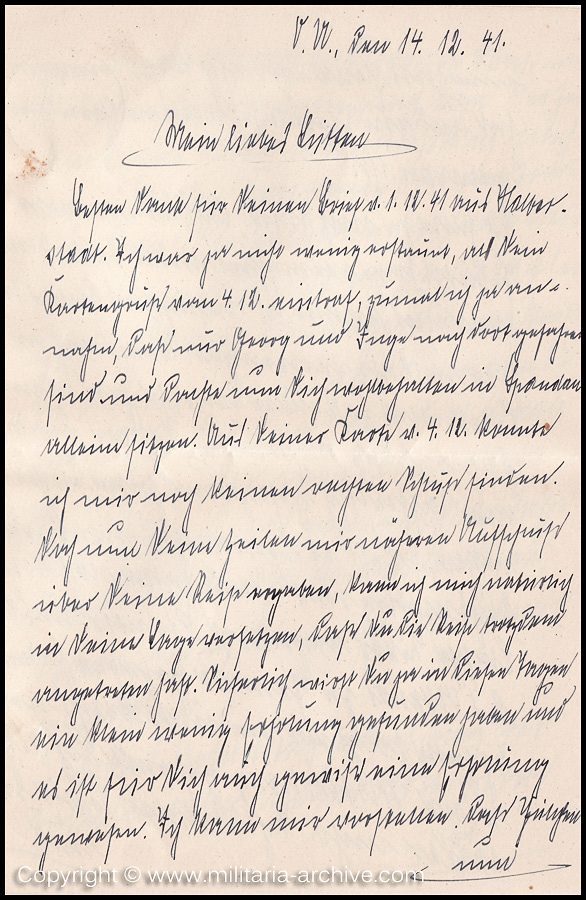 O.U., den 14. 12. 41.
Mein liebes Lütten
Besten Dank für Deinen Brief v. 1. 12. 41 aus Halber-
stadt. Ich war ja nicht wenig erstaunt, als Dein
Kartengruß vom 4. 12. eintraf, zumal ich ja an-
nahm, daß nur Georg und Inge nach dort gefahren
sind und dachte nun Dich wohlbehalten in Spandau
allein sitzen. Aus Deiner Karte v. 4. 12. konnte
ich mir noch keinen rechten Schluß finden.
Doch nun Deine Zeilen mir näheren Aufschluß
über Deine Reise ergaben, kann ich mich natürlich
in Deine Lage versetzen, daß Du die Reise trotzdem
angetreten hast. Sicherlich wirst Du ja in diesen Tagen
ein klein wenig Erholung gefunden haben und
es ist für Dich auch gewiß eine Erholung
gewesen. Ich kann mir vorstellen, daß
nun
Copyright © www.militaria-archive.com